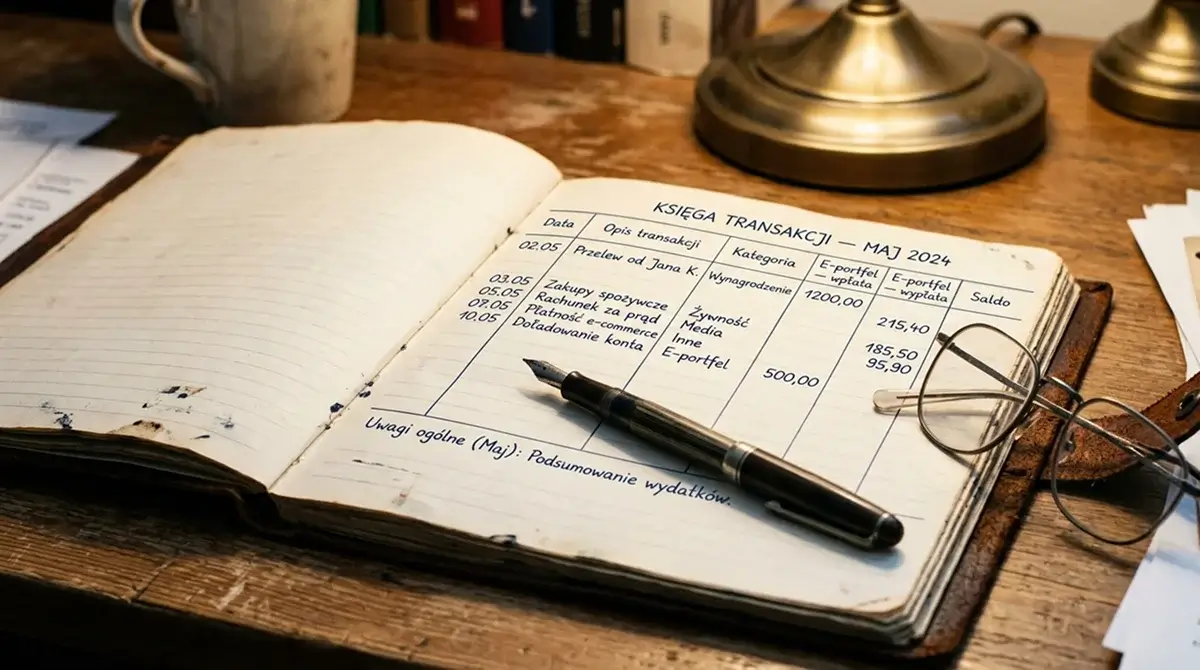 KSIĘGA TRANSAKCJI — MAJ 2024
Data Opis transakcji Kategoria E-portfel — wpłata E-portfel — wypłata Saldo
02.05 Przelew od Jana K. Wynagrodzenie 1200,00
03.05 Zakupy spożywcze Żywność 215,40
05.05 Rachunek za prąd Media 185,50
07.05 Płatność e-commerce Inne 95,90
10.05 Doładowanie konta E-portfel 500,00
Uwagi ogólne (Maj): Podsumowanie wydatków.